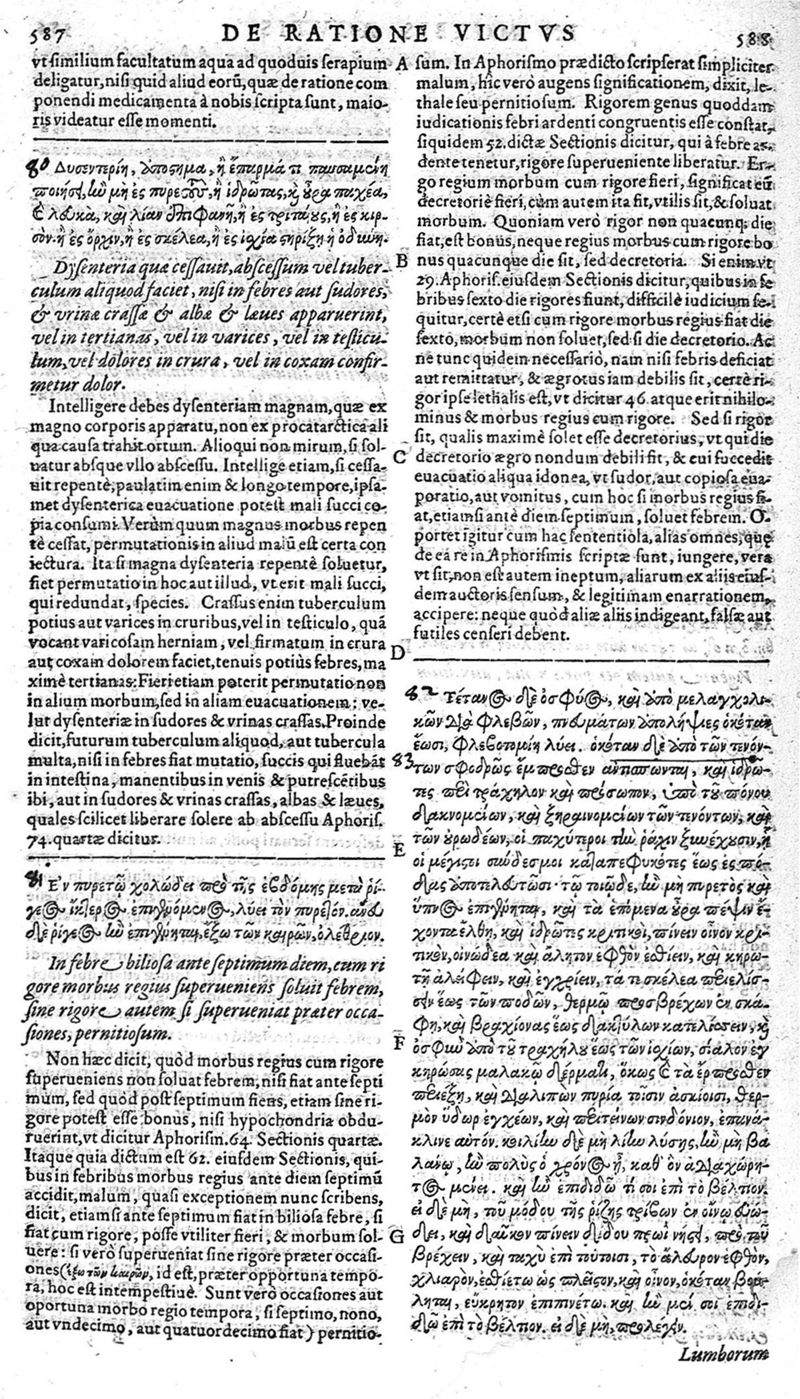 587
DE RATIONE VICTVS
588
vt similium facultatum aqua ad quoduis serapium
deligatur, nisi quid aliud eorũ, quæ de ratione com
ponendi medicamenta à nobis scripta sunt, maio-
ris videatur esse momenti.
80 Δυσεντερίη, ἀπόστημα, ἢ ἔπαρμά τι παυσαμένη
ποιήσει, ἢν μὴ ἐς πυρετοὺς, ἢ ἱδρῶτας, καὶ οὖρα παχέα,
καὶ λευκὰ, καὶ λίαν ἐπιφανῇ, ἢ ἐς τριταίους, ἢ ἐς κιρ-
σὸν. ἢ ἐς ὄρχιν, ἢ ἐς σκέλεα, ἢ ἐς ἰσχία στηρίξῃ ἡ ὀδύνη.
Dysenteria quæ cessauit, abscessum vel tuber-
culum aliquod faciet, nisi in febres aut sudores,
& vrinæ crassæ & albæ & læues apparuerint,
vel in tertianas, vel in varices, vel in testicu-
lum, vel dolores in crura, vel in coxam confir-
metur dolor.
Intelligere debes dysenteriam magnam, quæ ex
magno corporis apparatu, non ex procatarctica ali
qua causa trahit ortum. Alioqui non mirum, si sol-
uatur absque vllo abscessu. Intellige etiam, si cessa-
uit repentè, paulatim enim & longo tempore, ipsa-
met dysenterica euacuatione potest mali succi co-
pia consumi. Verùm quum magnus morbus repen
tè cessat, permutationis in aliud malũ est certa con
iectura. Ita si magna dysenteria repentè soluetur,
fiet permutatio in hoc aut illud, vt erit mali succi,
qui redundat, species. Crassus enim tuberculum
potius aut varices in cruribus, vel in testiculo, quã
vocant varicosam herniam, vel firmatum in crura
aut coxam dolorem faciet, tenuis potiùs febres, ma
ximè tertianas: Fieri etiam poterit permutatio non
in alium morbum, sed in aliam euacuationem: ve-
lut dysenteriæ in sudores & vrinas crassas. Proinde
dicit, futurum tuberculum aliquod, aut tubercula
multa, nisi in febres fiat mutatio, succis qui fluebãt
in intestina, manentibus in venis & putrescẽtibus
ibi, aut in sudores & vrinas crassas, albas & læues,
quales scilicet liberare solere ab abscessu Aphoris.
74. quartæ dicitur.
81 Ἐν πυρετῷ χολώδει πρὸ τῆς ἑβδόμης μετὰ ῥί-
γεος ἴκτερος ἐπιγενόμενος, λύει τὸν πυρετόν. ἄνευ
δὲ ῥίγεος ἢν ἐπιγένηται, ἔξω τῶν καιρῶν, ὀλέθριον.
In febre biliosa ante septimum diem, cum ri
gore morbus regius superueniens soluit febrem,
sine rigore autem si superueniat præter occa-
siones, pernitiosum.
Non hæc dicit, quòd morbus regius cum rigore
superueniens non soluat febrem, nisi fiat ante septi
mum, sed quòd post septimum fiens, etiam sine ri-
gore potest esse bonus, nisi hypochondria obdu-
ruerint, vt dicitur Aphorism. 64. Sectionis quartæ.
Itaque quia dictum est 62. eiusdem Sectionis, qui-
bus in febribus morbus regius ante diem septimũ
accidit, malum, quasi exceptionem nunc scribens,
dicit, etiamsi ante septimum fiat in biliosa febre, si
fiat cum rigore, posse vtiliter fieri, & morbum sol-
uere: si verò superueniat sine rigore præter occasi-
ones (ἔξω τῶν καιρῶν, id est, præter opportuna tempo-
ra, hoc est intempestiuè. Sunt verò occasiones aut
oportuna morbo regio tempora, si septimo, nono,
aut vndecimo, aut quatuordecimo fiat) pernitio-
A
B
C
D
E
F
G
sum. In Aphorismo prædicto scripserat simpliciter
malum, hîc verò augens significationem, dixit, le-
thale seu pernitiosum. Rigorem genus quoddam
iudicationis febri ardenti congruentis esse constat,
siquidem 52. dictæ Sectionis dicitur, qui à febre ar-
dente tenetur, rigore superueniente liberatur. Er-
go regium morbum cum rigore fieri, significat eũ
decretoriè fieri, cùm autem ita fit, vtilis sit, & soluat
morbum. Quoniam verò rigor non quacunque die
fiat, est bonus, neque regius morbus cum rigore bo
nus quacunque die sit, sed decretoria. Si enim vt
29. Aphoris. eiusdem Sectionis dicitur, quibus in fe
bribus sexto die rigores fiunt, difficilè iudicium se-
quitur, certè etsi cum rigore morbus regius fiat die
sexto, morbum non soluet, sed si die decretorio. Ac
ne tunc quidem necessariò, nam nisi febris deficiat
aut remittatur, & ægrotus iam debilis sit, certè ri-
gor ipse lethalis est, vt dicitur 46. atque erit nihilo-
minus & morbus regius cum rigore. Sed si rigor
sit, qualis maximè solet esse decretorius, vt qui die
decretorio ægro nondum debili fit, & cui succedit
euacuatio aliqua idonea, vt sudor, aut copiosa eua-
poratio, aut vomitus, cum hoc si morbus regius fi-
at, etiamsi antè diem septimum, soluet febrem. O-
portet igitur cum hac sententiola, alias omnes, quę
de ea re in Aphorismis scriptæ sunt, iungere, vera
vt sit, non est autem ineptum, aliarum ex aliis eius-
dem auctoris sensum, & legitimam enarrationem,
accipere: neque quòd aliæ aliis indigeant, falsæ aut
futiles censeri debent.
82 Τέτανος δὲ ὀσφύος, καὶ ἀπὸ μελαγχολι-
κῶν διὰ φλεβῶν, πνευμάτων ἀπολήψιες ὁκόταν
ἔωσι, φλεβοτομίη λύει. ὁκόταν δὲ ἀπὸ τῶν τενόν-
83 των σφοδρῶς ἔμπροσθεν ἀντισπῶνται, καὶ ἱδρῶ-
τες περὶ τράχηλον καὶ πρόσωπον, ὑπὸ τοῦ πόνου
δακνομένων, καὶ ξηραινομένων τῶν τενόντων, καὶ
τῶν οὐρωδέων, οἱ παχύτεροι τὴν ῥάχιν ξυνέχουσιν, ἢ
οἱ μέγιστοι σύνδεσμοι καταπεφυκότες ἕως ἐς πό-
δας ἀποτελευτῶσι· τῷ τοιῷδε, ἢν μὴ πυρετὸς καὶ
ὕπνος ἐπιγένηται, καὶ τὰ ἑπόμενα οὖρα πέψιν ἔ-
χοντα ἔλθῃ, καὶ ἱδρῶτες κριτικοὶ, πίνειν οἶνον κρη-
τικὸν, οἰνώδεα καὶ ἄλητον ἑφθὸν ἐσθίειν, καὶ κηρω-
τῇ ἀλείφειν, καὶ ἐγχρίειν, τά τε σκέλεα περιελίσ-
σειν ἕως τῶν ποδῶν, θερμῷ προσβρέχων ἐν σκά-
φῃ, καὶ βραχίονας ἕως δακτύλων κατελίσσειν, καὶ
ὀσφὺν ἀπὸ τοῦ τραχήλου ἕως τῶν ἰσχίων, σίαλον ἐγ
κηρώσας μαλακῷ δέρματι, ὅκως καὶ τὰ ἔμπροσθεν
περιέξῃ, καὶ διαλιπὼν πυρία τοῖσιν ἀσκίοισι, θερ-
μὸν ὕδωρ ἐγχέων, καὶ περιτείνων σινδόνιον, ἐπανά-
κλινε αὐτόν. κοιλίην δὲ μὴ λίην λύσῃς, ἢν μὴ βα
λάνῳ, ἢν πολὺς ὁ χρόνος ᾖ, καθ᾽ ὃν ἀδιαχώρη-
τος μένει. καὶ ἢν ἐπιδιδῷ τί σοι ἐπὶ τὸ βέλτιον.
εἰ δὲ μὴ, τοῦ μόδου τῆς ῥίζης τρίβων ἐν οἴνῳ εὐώ-
δει, καὶ δαῦκον πίνειν δίδου πρωῒ νήστει, πρὸ τοῦ
βρέχειν, καὶ ταχὺ ἐπὶ τούτοισι, τὸ ἄλευρον ἑφθὸν,
χλιαρὸν, ἐσθιέτω ὡς πλεῖστον, καὶ οἶνον, ὁκόταν βού-
ληται, εὔκρητον ἐπιπινέτω. καὶ ἢν μέν σοι ἐπιδι-
δῶ ἐπὶ τὸ βέλτιον. εἰ δὲ μὴ, προλέγειν.
Lumborum